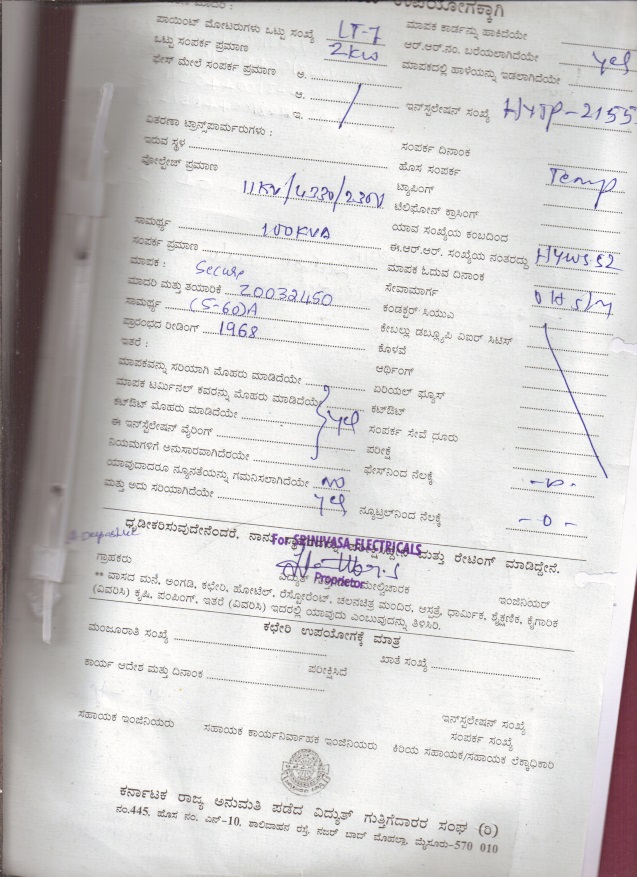 ಉಪಯೋಗಕ್ಕಾಗಿ
ಪಾಯಿಂಟ್ ಮೋಟರುಗಳು ಒಟ್ಟು ಸಂಖ್ಯೆ LT-7 ಮಾಪಕ ಕಾರ್ಡನ್ನು ಹಾಕಿದೆಯೇ
ಒಟ್ಟು ಸಂಪರ್ಕ ಪ್ರಮಾಣ 2KW ಆರ್.ಆರ್.ನಂ. ಬರೆಯಲಾಗಿದೆಯೇ yes
ಫೇಸ್ ಮೇಲೆ ಸಂಪರ್ಕ ಪ್ರಮಾಣ ಅ. ಮಾಪಕದಲ್ಲಿ ಹಾಳೆಯನ್ನು ಇಡಲಾಗಿದೆಯೇ
ಆ.
ಇ. ಇನ್‌ಸ್ಟಲೇಷನ್ ಸಂಖ್ಯೆ HYTP-2155
ವಿತರಣಾ ಟ್ರಾನ್ಸ್‌ಪಾರ್ಮರುಗಳು : ಸಂಪರ್ಕ ದಿನಾಂಕ
ಇರುವ ಸ್ಥಳ ಹೊಸ ಸಂಪರ್ಕ Temp
ವೋಲ್ಟೇಜ್ ಪ್ರಮಾಣ ಟ್ಯಾಪಿಂಗ್
11KV/4330/230V ಟೆಲಿಫೋನ್ ಕ್ರಾಸಿಂಗ್
ಯಾವ ಸಂಖ್ಯೆಯ ಕಂಬದಿಂದ
ಸಾಮರ್ಥ್ಯ 100KVA ಈ.ಆರ್.ಆರ್. ಸಂಖ್ಯೆಯ ನಂತರದ್ದು HYWS52
ಸಂಪರ್ಕ ಪ್ರಮಾಣ ಮಾಪಕ ಓದುವ ದಿನಾಂಕ
ಮಾಪಕ : Secure ಸೇವಾಮಾರ್ಗ
ಮಾದರಿ ಮತ್ತು ತಯಾರಿಕೆ 20032450 ಕಂಡಕ್ಟರ್ ಸಿಯುಎ
ಸಾಮರ್ಥ್ಯ (5-60)A ಕೇಬಲ್ಲು ಡಬ್ಲ್ಯೂಪಿ ಎಐಆರ್ ಸಿಟಿಸ್
ಪ್ರಾರಂಭದ ರೀಡಿಂಗ್ 1968 ಕೊಳವೆ
ಇತರೆ : ಆರ್ಥಿಂಗ್
ಮಾಪಕವನ್ನು ಸರಿಯಾಗಿ ಮೊಹರು ಮಾಡಿದೆಯೇ ಏರಿಯಲ್ ಫ್ಯೂಸ್
ಮಾಪಕ ಟರ್ಮಿನಲ್ ಕವರನ್ನು ಮೊಹರು ಮಾಡಿದೆಯೇ ಕಟ್‌ಔಟ್
ಕಟ್‌ಔಟ್ ಮೊಹರು ಮಾಡಿದೆಯೇ yes ಸಂಪರ್ಕ ಸೇವೆ ದೂರು
ಈ ಇನ್‌ಸ್ಟಲೇಷನ್ ವೈರಿಂಗ್ ಪರೀಕ್ಷೆ
ನಿಯಮಗಳಿಗೆ ಅನುಸಾರವಾಗಿದೆರಯೇ ಫೇಸ್‌ನಿಂದ ನೆಲಕ್ಕೆ -0-
ಯಾವುದಾದರೂ ನ್ಯೂನತೆಯನ್ನು ಗಮನಿಸಲಾಗಿದೆಯೇ no
ಮತ್ತು ಅದು ಸರಿಯಾಗಿದೆಯೇ yes ನ್ಯೂಟ್ರಲ್‌ನಿಂದ ನೆಲಕ್ಕೆ -0-
ಧೃಡೀಕರಿಸುವುದೇನೆಂದರೆ, ನಾನು ಮತ್ತು ರೇಟಿಂಗ್ ಮಾಡಿದ್ದೇನೆ.
For SRINIVASA ELECTRICALS
Proprietor
ಗ್ರಾಹಕರು ಮೇಲ್ವಿಚಾರಕ ಇಂಜಿನಿಯರ್
** ವಾಸದ ಮನೆ, ಅಂಗಡಿ, ಕಛೇರಿ, ಹೋಟೆಲ್, ರೆಸ್ಟೋರೆಂಟ್, ಚಲನಚಿತ್ರ ಮಂದಿರ, ಆಸ್ಪತ್ರೆ, ಧಾರ್ಮಿಕ, ಶೈಕ್ಷಣಿಕ, ಕೈಗಾರಿಕ
(ವಿವರಿಸಿ) ಕೃಷಿ, ಪಂಪಿಂಗ್, ಇತರೆ (ವಿವರಿಸಿ) ಇದರಲ್ಲಿ ಯಾವುದು ಎಂಬುವುದನ್ನು ತಿಳಿಸಿರಿ.
ಕಛೇರಿ ಉಪಯೋಗಕ್ಕೆ ಮಾತ್ರ
ಮಂಜೂರಾತಿ ಸಂಖ್ಯೆ ಖಾತೆ ಸಂಖ್ಯೆ
ಕಾರ್ಯ ಆದೇಶ ಮತ್ತು ದಿನಾಂಕ ಪರೀಕ್ಷಿಸಿದೆ
ಇನ್‌ಸ್ಟಲೇಷನ್ ಸಂಖ್ಯೆ
ಸಂಪರ್ಕ ಸಂಖ್ಯೆ
ಸಹಾಯಕ ಇಂಜಿನಿಯರು ಸಹಾಯಕ ಕಾರ್ಯನಿರ್ವಾಹಕ ಇಂಜಿನಿಯರು ಕಿರಿಯ ಸಹಾಯಕ/ಸಹಾಯಕ ಲೆಕ್ಕಾಧಿಕಾರಿ
ಕರ್ನಾಟಕ ರಾಜ್ಯ ಅನುಮತಿ ಪಡೆದ ವಿದ್ಯುತ್ ಗುತ್ತಿಗೆದಾರರ ಸಂಘ (ರಿ)
ನಂ.445, ಹೊಸ ನಂ. ಎನ್-10, ಶಾಲಿವಾಹನ ರಸ್ತೆ, ನಜರ್ ಬಾದ್ ಮೊಹಲ್ಲಾ, ಮೈಸೂರು-570 010